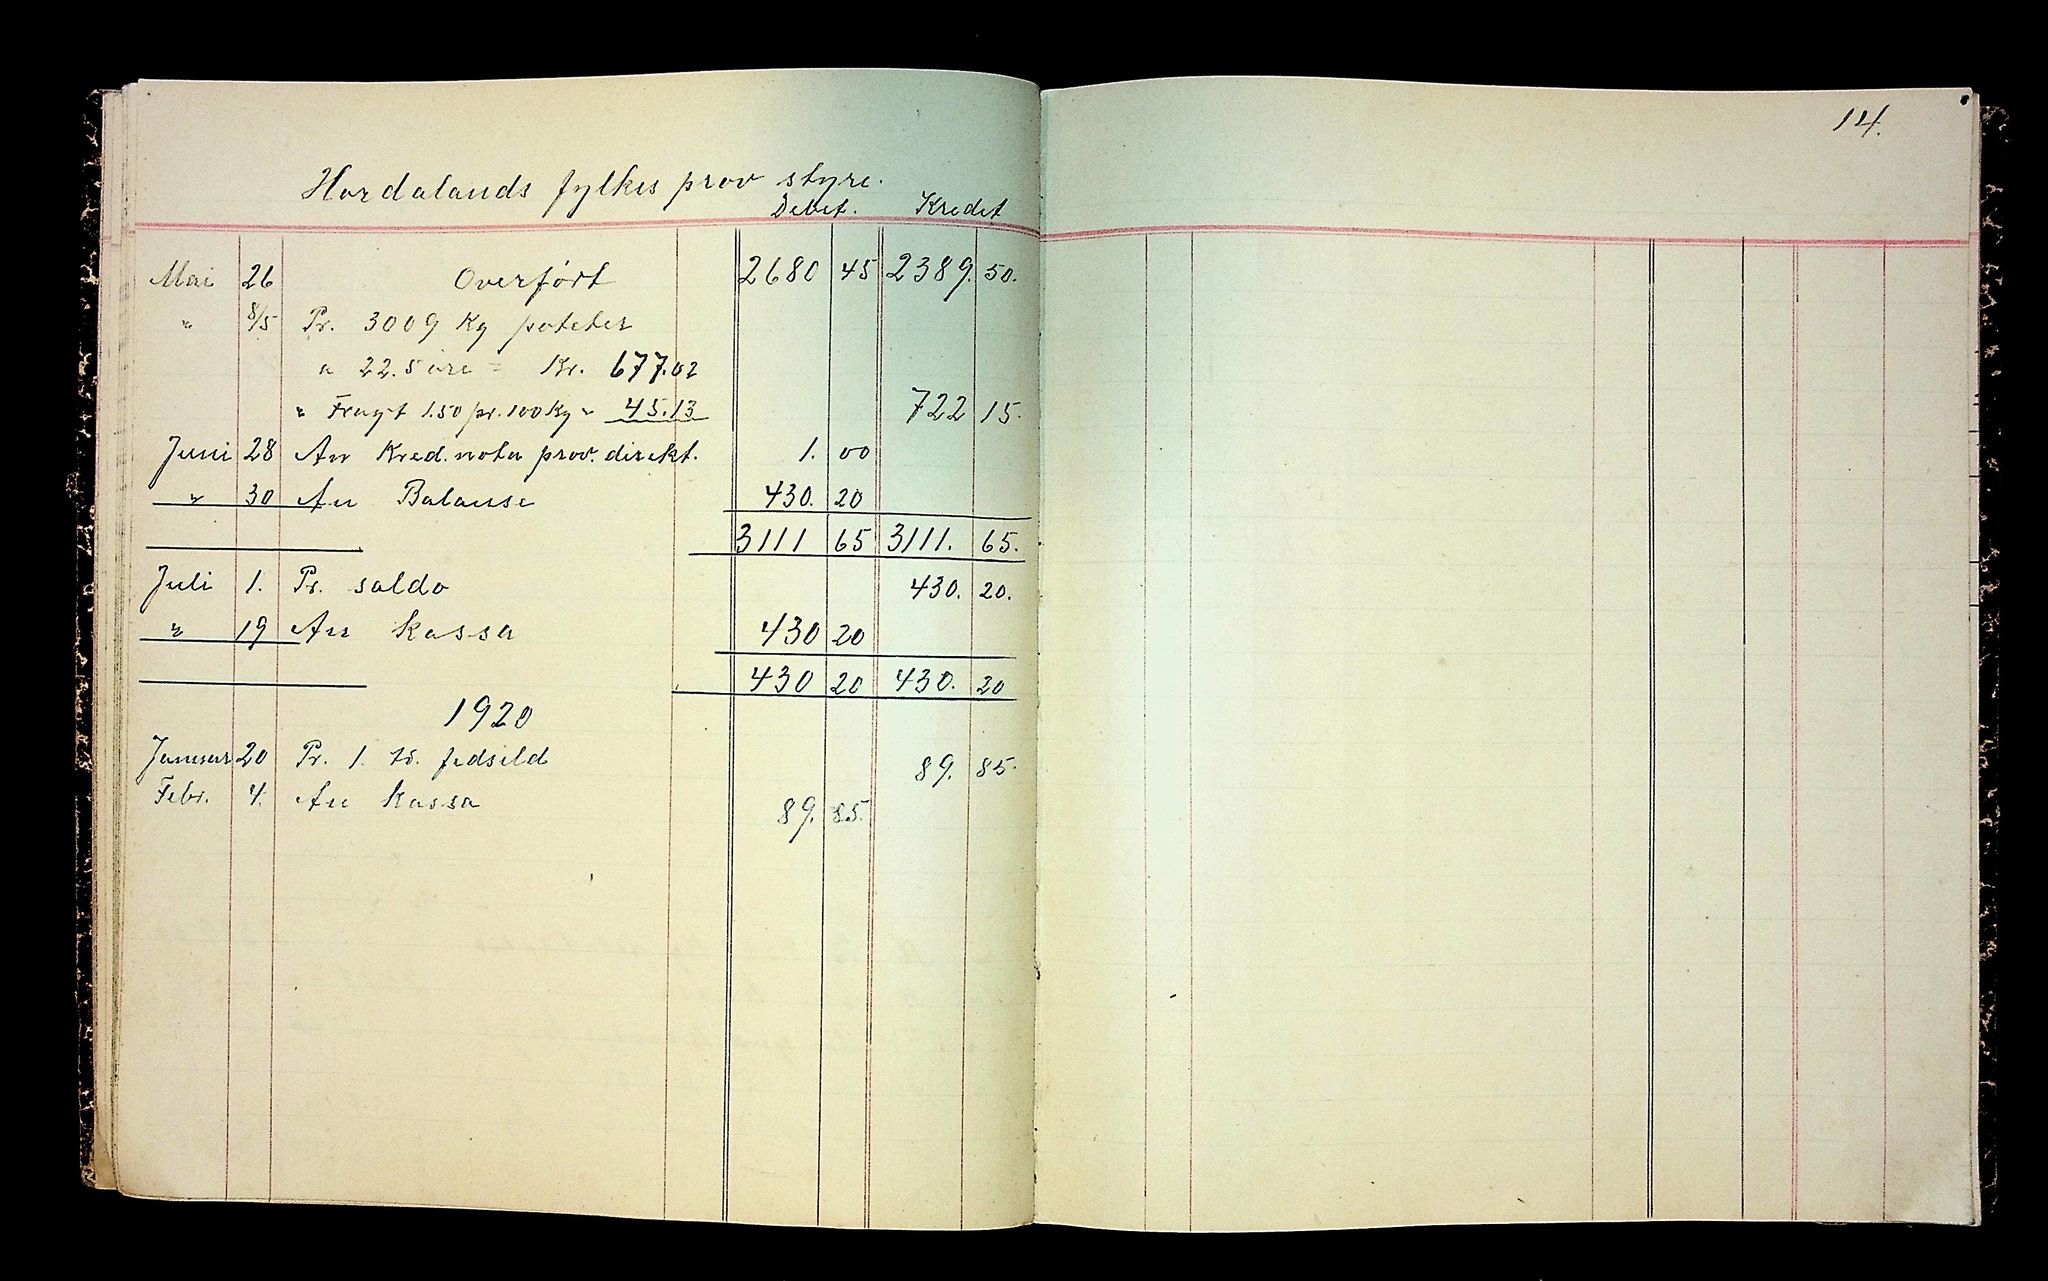 14.
Hordalands fylkes prov styre.
Debet. Kredit
Mai 26 Overført 2680 45 2389. 50.
" 8/5 Pr. 3009 Kg poteter
a 22.5 øre = Kr. 677.02
" Fragt 1.50 pr. 100 Kg " 45.13 722 15.
Juni 28 An Kred. nota prov. direkt. 1. 00
" 30 An Balanse 430. 20
3111 65 3111. 65.
Juli 1. Pr. saldo 430. 20.
" 19 An Kassa 430 20
430 20 430. 20
1920
Januar 20 Pr. 1. td. fedsild 89. 85.
Febr. 4. An Kassa 89. 85.